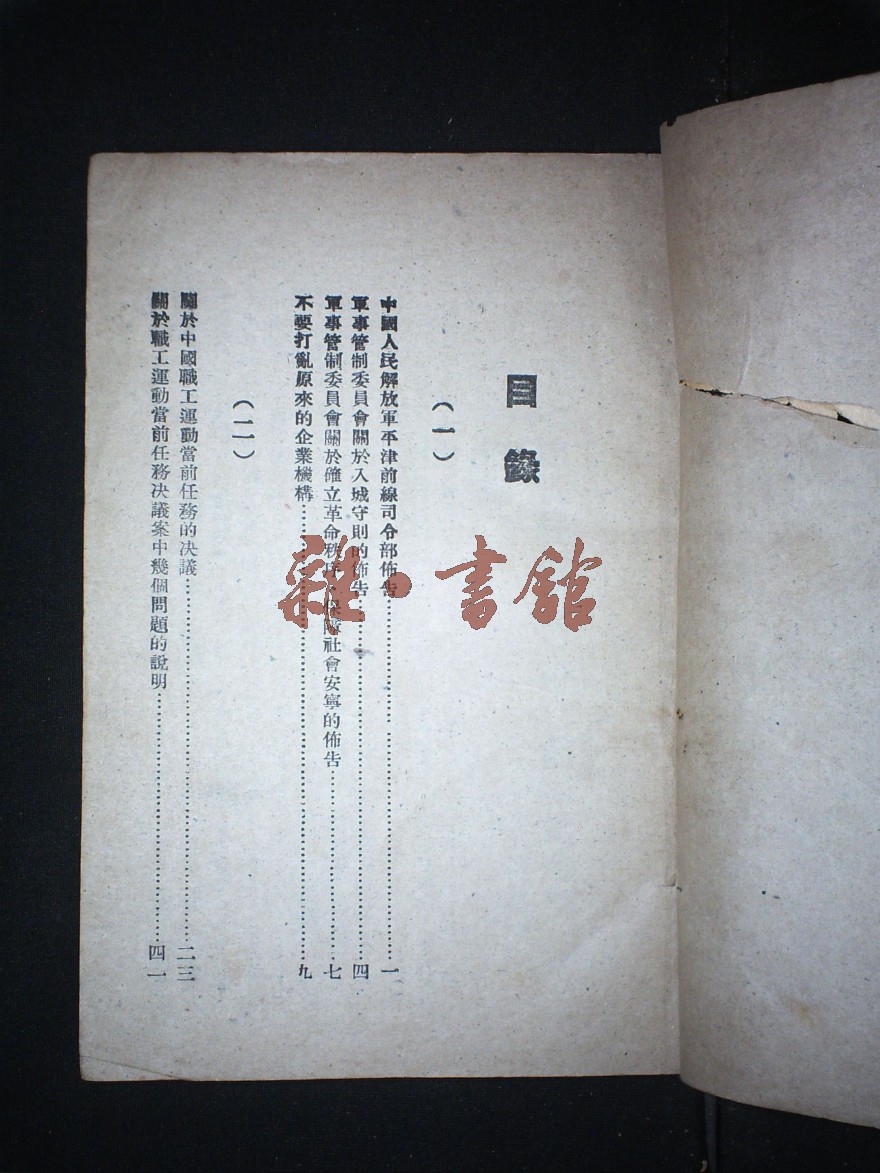 目錄
(一)
中國人民解放軍平津前線司令部佈告……一
軍事管制委員會關於入城守則的佈告……四
軍事管制委員會關於確立革命秩序保障社會安寧的佈告……七
不要打亂原來的企業機構……九
(二)
關於中國職工運動當前任務的决議……二三
關於職工運動當前任務决議案中幾個問題的說明……四一
雜·書館